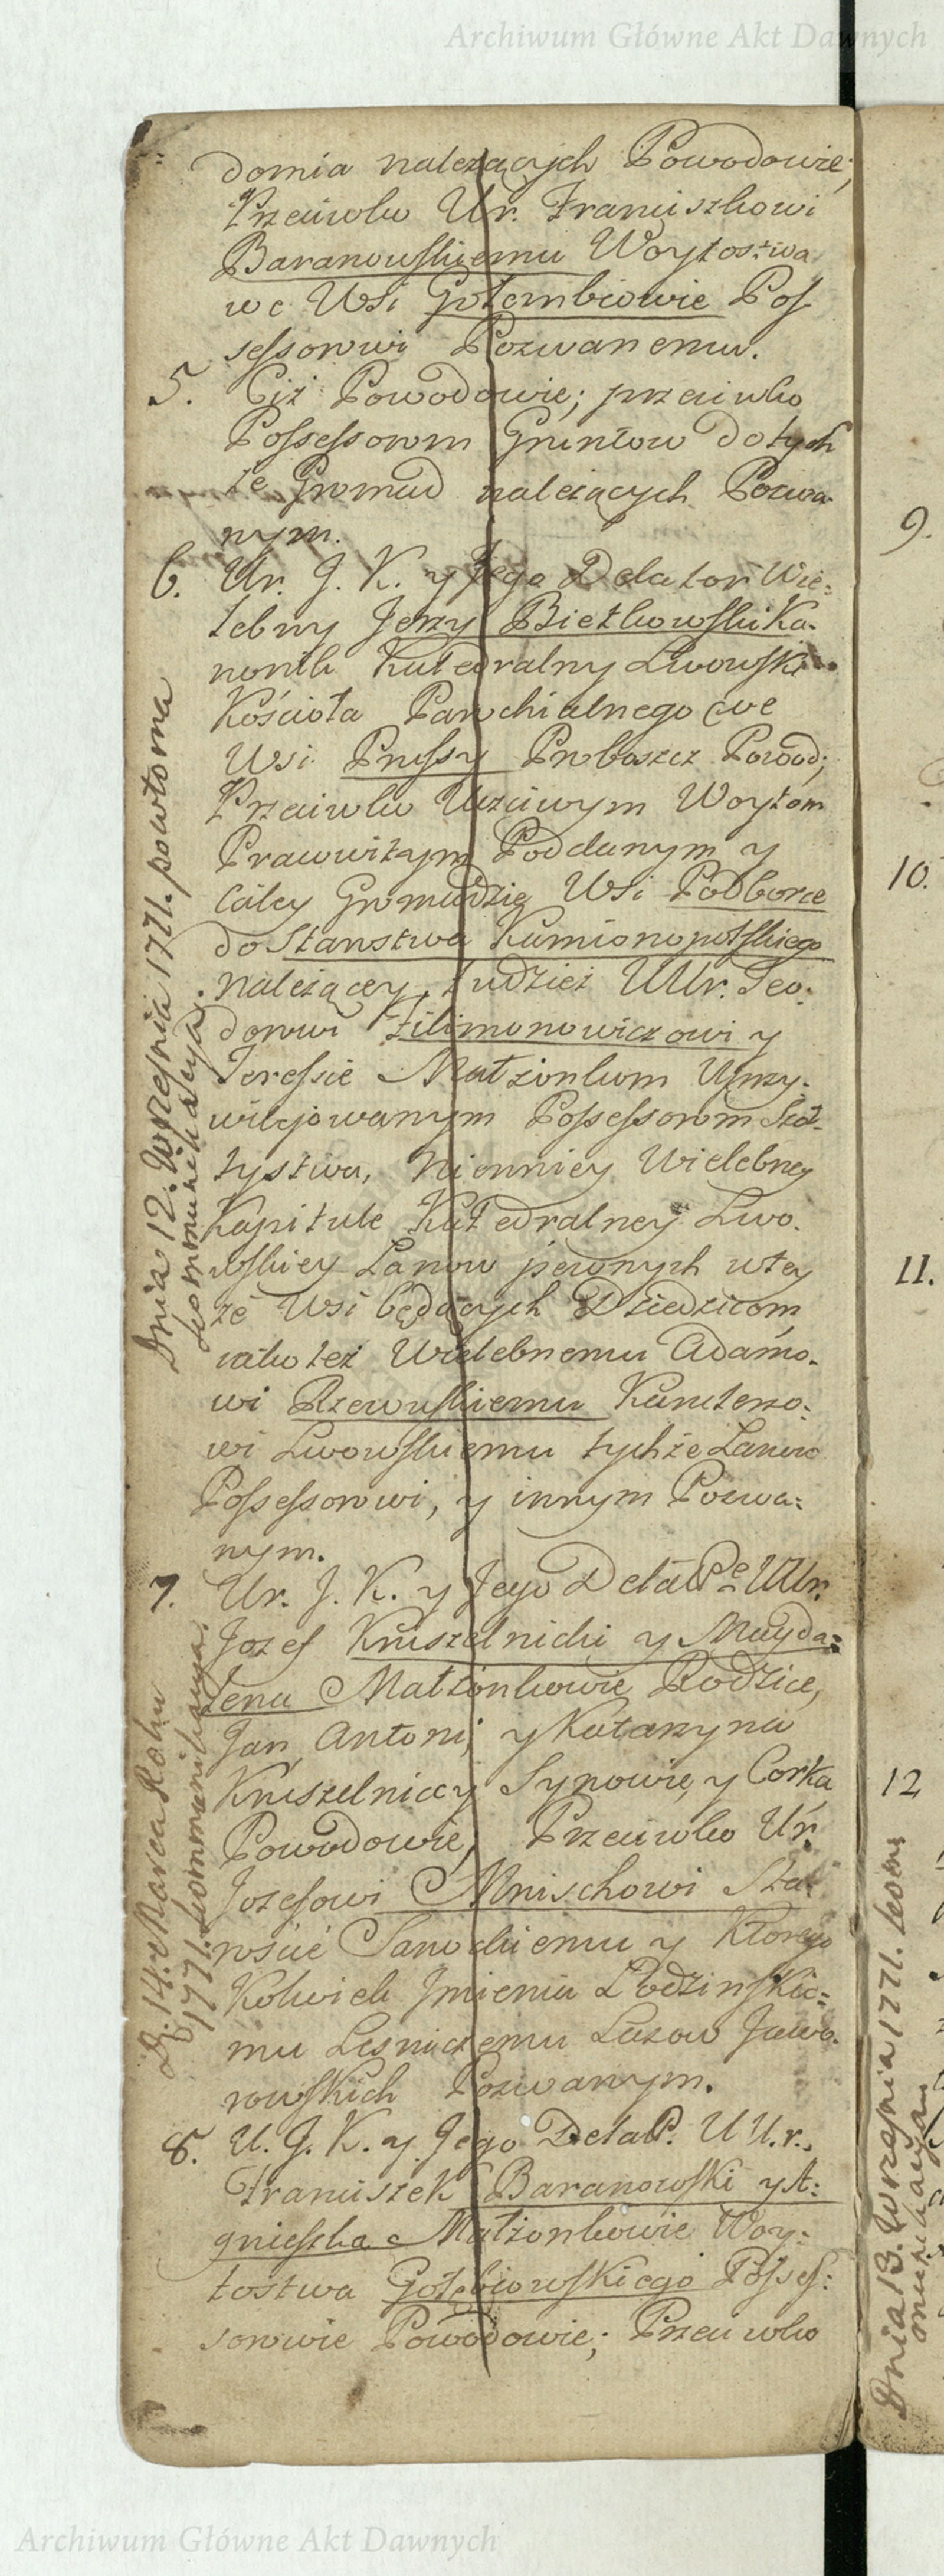 Archiwum Główne Akt Dawnych
domia należących Powodowie,
Przeciwko Ur. Franciszkowi
Baranowskiemu Woytostwa
we Wsi Gołembiowie Pos
sessorowi Pozwanemu.
5. Ciż Powodowie; przeciwko
Possessorom Gruntow do tych
że Gromad należących Pozwa-
nym.
6. Ur. J. K. y Jego Delator Wie:
lebny Jerzy Bietkowski Ka-
nonik Katedralny Lwowski
Kościoła Parochialnego we
Wsi Prussy Proboszcz Powod;
Przeciwko Uczciwym Woytom
Prawwitym Poddanym y
całey Gromadzie Wsi Podborce
do Starostwa Kamionopolskiego
należącey, tudzież UUr. Teo:
dorowi Filimonowiczowi y
Teressie Małżonkom Uprzy-
wilejowanym Possessorom Szoł-
tystwa, Niemniey Wielebney
Kapitule Katedralney Lwo-
wskiey Lanow pewnych w tey
że Wsi będących Dziedzicom
iako też Wielebnemu Adamo-
wi Rzewuskiemu Kantoro:
wi Lwowskiemu tychże Lanow
Possessorowi, y innym Pozwa:
nym.
Dnia 12. Września 1771. powtorna
kommunikacya.
7. Ur. J. K. y Jego Dela Pe UUr.
Jozef Kruszelnicki y Magda:
lena Małżonkowie Rodzice,
Jan, Antoni, y Katarzyna
Kruszelniccy Synowie, y Corka
Powodowie, Przeciwko Ur.
Jozefowi Mniszchowi Sta-
roście Sanockiemu y Ktorego
Kolwiek Jmienia Łodzinskie:
mu Lesniczemu Lasow Jawo-
rowskich Pozwanym.
D. 14. Marca Roku
1771. kommunikacya.
8. U. J. K. y Jego Dela P. UUr.
Franciszek Baranowski y A:
gnieszka Małżonkowie Woy:
tostwa Gołębiowskiego Posses:
sorowie Powodowie; Przeciwko
9.
10.
11.
12
Dnia 13. Września 1771. kom
munikacya
Archiwum Główne Akt Dawnych